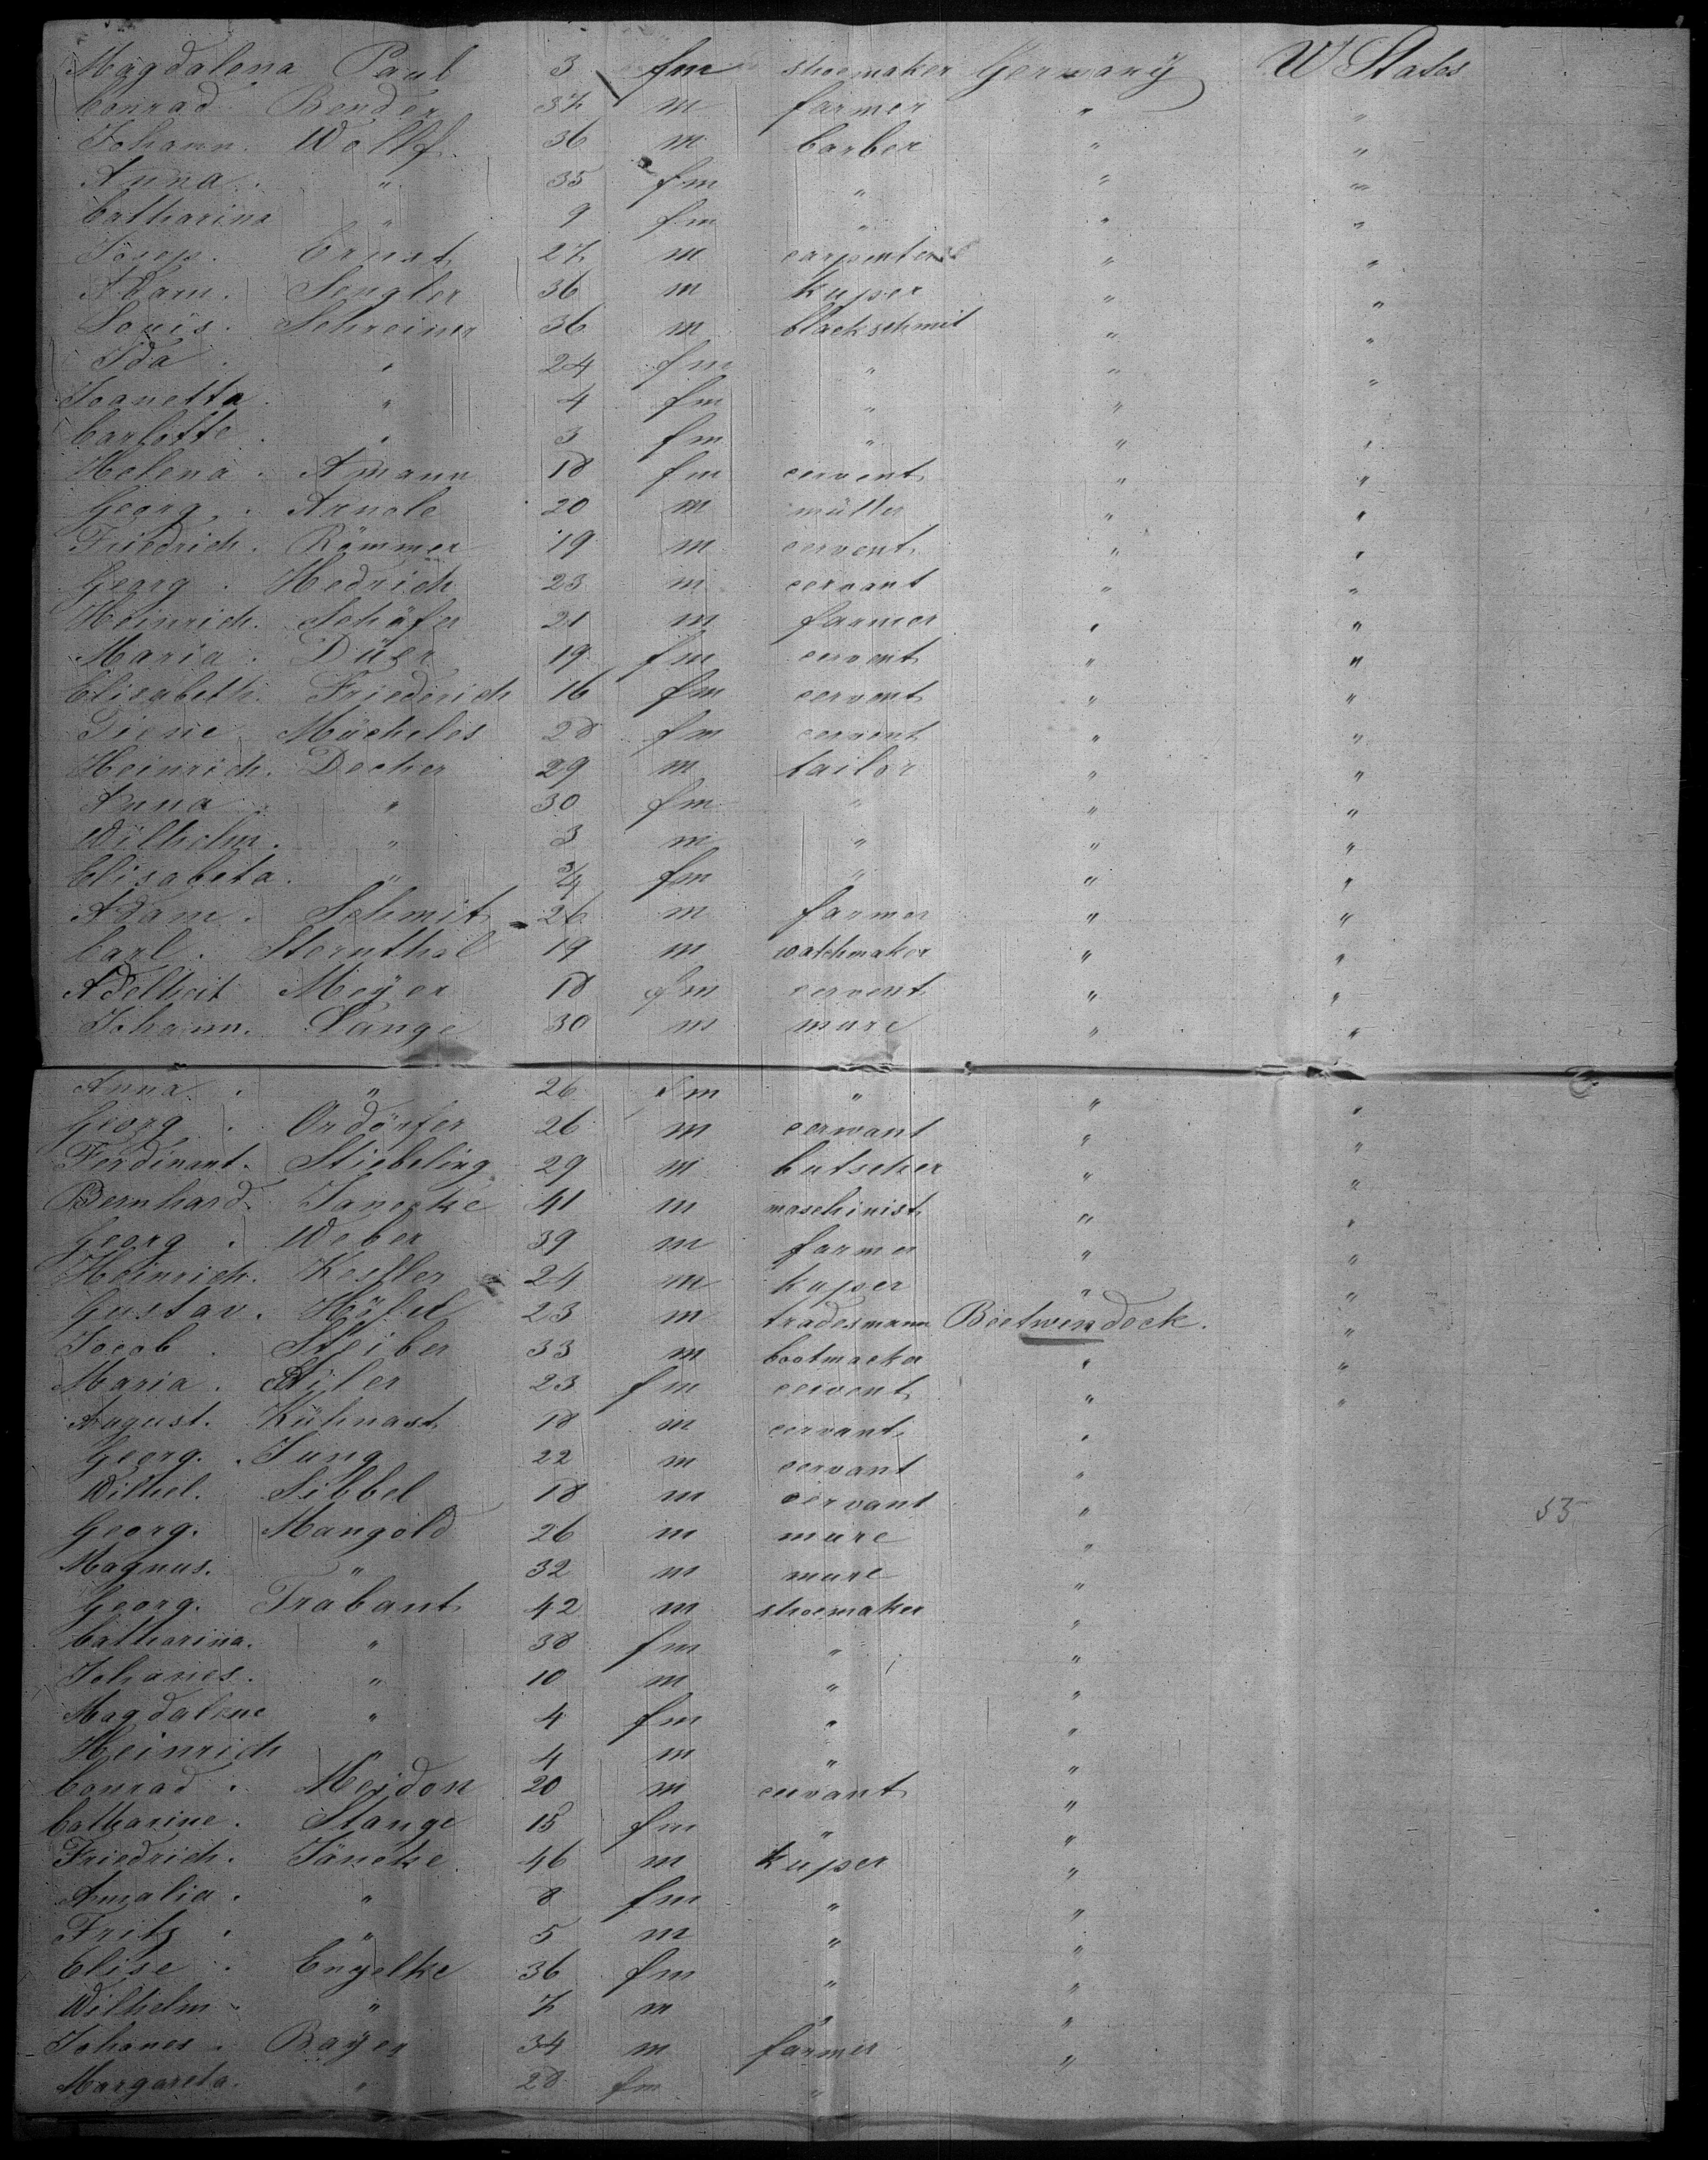 Magdalena Paul 3 fm shoemaker Germany U States
Conrad Bender 37 m farmer " "
Johann. Wollf. 36 m barber " "
Anna. " 35 fm " " "
Catharina " 9 fm " " "
Josep. Ernst 27 m carpenter " "
Adam. Sengler 36 m kuper " "
Louis. Schreiner 36 m blackschmit " "
Ida. " 24 fm " " "
Joanetta " 4 fm " " "
Carlotte. " 3 fm " " "
Helena. Amann 18 fm cervent " "
Georg. Arnole 20 m müller " "
Friedrich. Römmer 19 m cervent " "
Georg. Hedrich 23 m cervant " "
Heinrich. Schäfer 21 m farmer " "
Maria. Düer 19 fm cervent " "
Elisabeth. Friedirich 16 fm cervent " "
Diene Mücheles 28 fm cervent " "
Heinrich. Decher 29 m tailor " "
Anna. " 30 fm " " "
Wilhelm. " 3 m " " "
Elisabeta. " 3/4 fm " " "
Adam. Schmit 26 m farmer " "
Carl. Sternthal 19 m watchmaker " "
Adelheit Meÿer 18 fm cervent " "
Johann. Lange 30 m mure " "
Anna. " 26 fm " " "
Georg. Ordörfer 26 m cervant " "
Ferdinant. Stiebeling 29 m butscher " "
Bernhard. Janecke 41 m maschinist " "
Georg. Weber 39 m farmer " "
Heinrich. Kesller 24 m kuper " "
Gustav. Höfel 23 m tradesmann Beetwendock. "
Jocob. Steiber 33 m bootmacker " "
Maria. Stiler 23 fm cervent " "
August. Kühnast 18 m cervant "
Georg. Jung 22 m cervant "
Wilhel. Sibbel 18 m cervant "
53
Georg. Mangold 26 m mure "
Magnus. " 32 m mure "
Georg. Trabant 42 m shoemaker "
Catharina. " 38 fm " "
Johanes. " 10 m " "
Magdalene " 4 fm " "
Heinrich " 4 m " "
Conrad. Meidon 20 m cervant "
Catharine. Stange 15 fm " "
Friedrich. Jäneke. 46 m kuper "
Amalia. " 8 fm " "
Fritz. " 5 m " "
Elise. Engelke 36 fm " "
Wilhelm. " 7 m " "
Johanes. Baÿer 34 m farmer "
Margareta. " 28 fm "